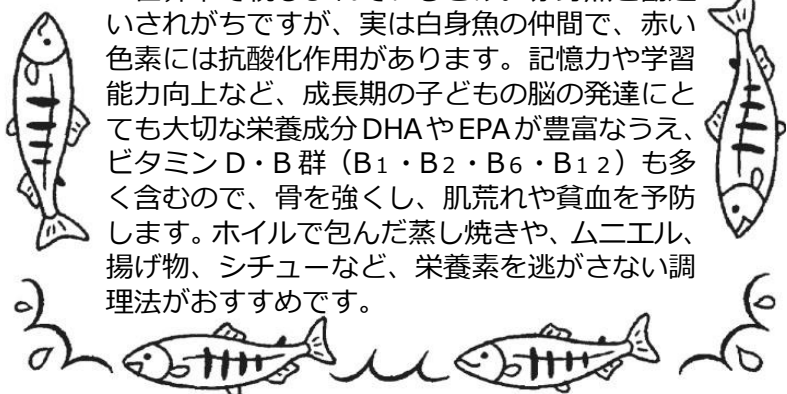 いされがちですが、実は白身魚の仲間で、赤い
色素には抗酸化作用があります。記憶力や学習
能力向上など、成長期の子どもの脳の発達にと
ても大切な栄養成分DHAやEPAが豊富なうえ、
ビタミンD・B群（B1・B2・B6・B12）も多
く含むので、骨を強くし、肌荒れや貧血を予防
します。ホイルで包んだ蒸し焼きや、ムニエル、
揚げ物、シチューなど、栄養素を逃がさない調
理法がおすすめです。